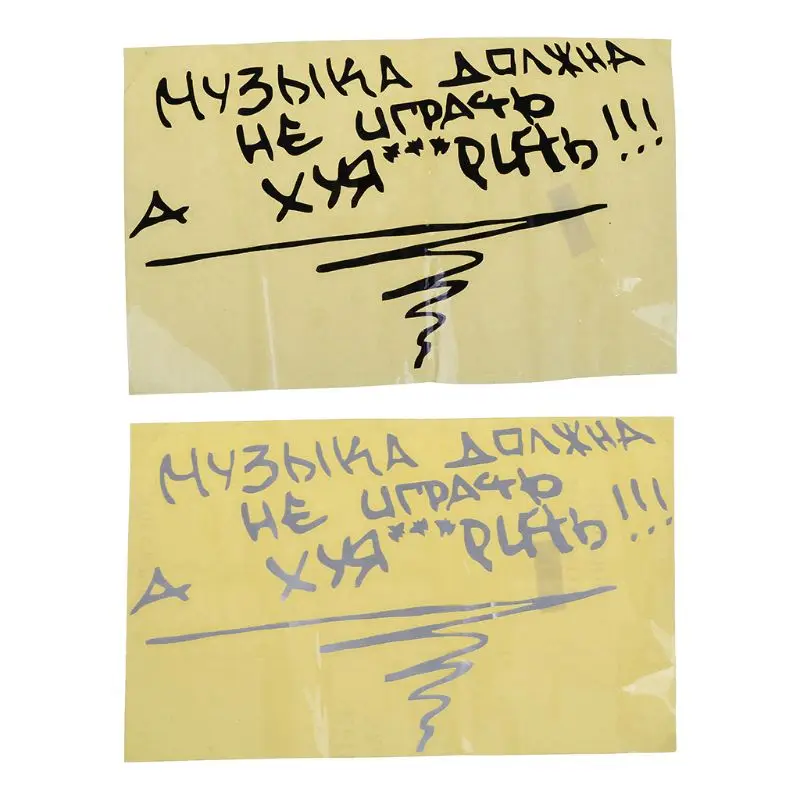 МУЗЫКА ДОЛЖНА
НЕ ИГРАТЬ
А ХУЯ***РИТЬ!!!
МУЗЫКА ДОЛЖНА
НЕ ИГРАТЬ
А ХУЯ***РИТЬ!!!